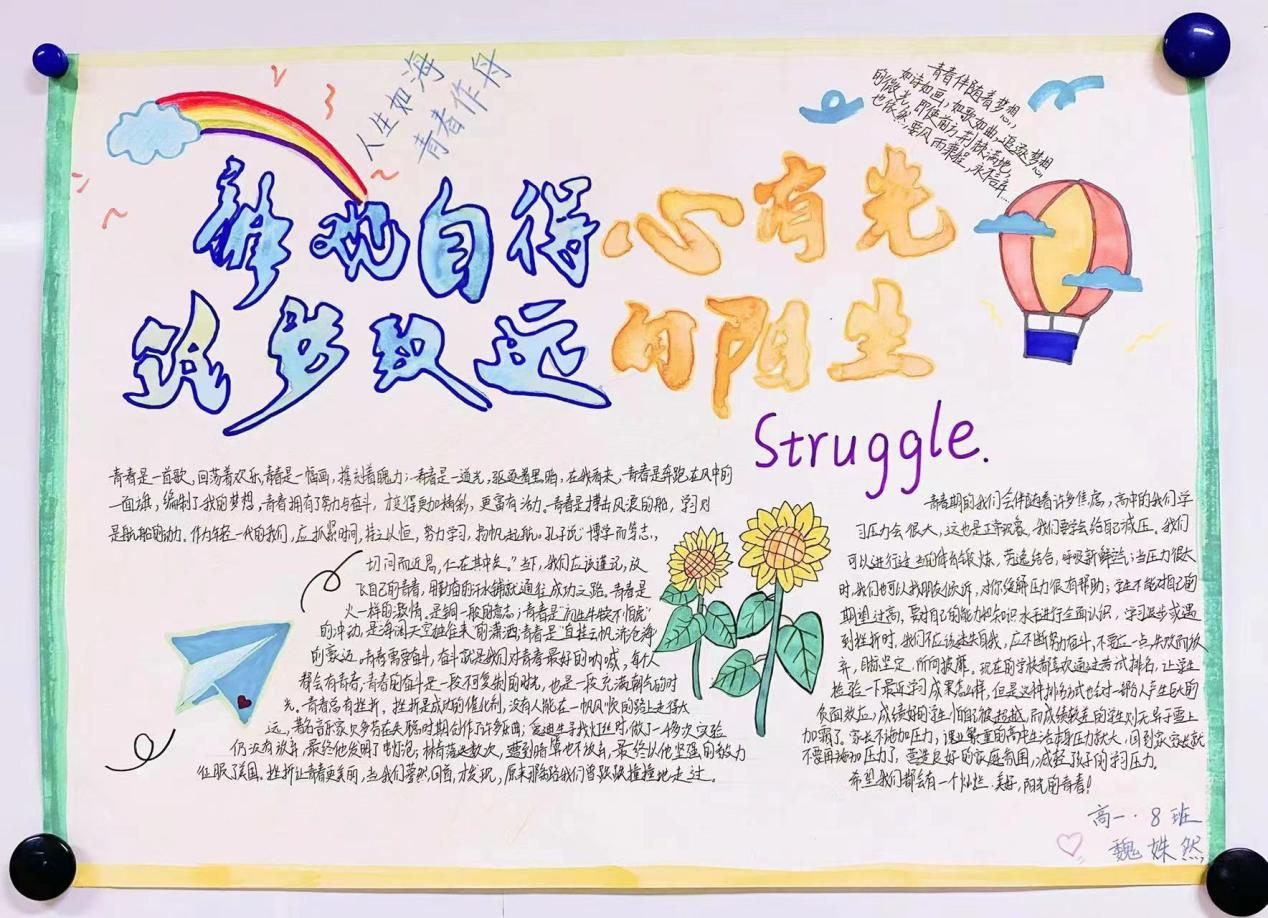 人生如海
青春作舟
青春伴随着梦想,
如诗如画,如歌如曲,追逐梦想
的微光,即使前方荆棘满地,
也依然
静观自得
筑梦致远
心有光
向阳生
Struggle.
青春是一首歌,回荡着欢乐,青春是一幅画,镌刻着魄力;青春是一道光,驱逐着黑暗,在我看来,青春是奔跑在风中的
一面旗,编制了我的梦想,青春拥有了努力与奋斗,才变得更加精彩,更富有活力,青春是搏击风浪的船,学习则
是航船的动力。作为年轻一代的我们,应抓紧时间,持之以恒,努力学习,扬帆起航。孔子说“博学而笃志,
切问而近思,仁在其中矣。”当下,我们应该谨记,放
飞自己的青春,用勤奋的汗水铺就通往成功之路,青春是
火一样的激情,是钢一般的意志;青春是“初生牛犊不怕虎”
的冲动,是“海阔天空任鱼来”的潇洒,青春是“直挂云帆济沧海”
的豪迈。青春需要奋斗,奋斗就是我们对青春最好的呐喊,每个人
都会有青春,青春的奋斗是一段不可复制的时光,也是一段充满朝气的时
光,青春总有挫折,挫折是成功的催化剂,没有人能在一帆风顺的路上走得太
远,著名音乐家贝多芬在失聪时期创作了许多歌曲;爱迪生寻找灯丝时,做了一伤次实验
仍没有放弃,最终他发明了电灯泡,林肯落选数次,遭到暗算也不放弃,最终以他坚强的毅力
征服了美国。挫折让青春更美丽,当我们蓦然回首,才发现,原来那条路我们曾跌跌撞撞地走过。
青春期的我们会伴随着许多焦虑,高中的我们学
习压力会很大,这也是正常现象,我们要学会给自己减压。我们
可以进行适当的体育锻炼,劳逸结合,呼吸新鲜空气;当压力很大
时,我们也可以找朋友倾诉,对你缓解压力很有帮助;学生不能对自己的
期望过高,要对自己的能力和知识水平进行全面认识,学习退步或遇
到挫折时,我们不应该迷失自我,应不断努力奋斗,不要应一点失败而放
弃,目标坚定,所向披靡。现在的学校都喜欢通过考试排名,让学生
检验一下最近学习成果怎么样,但是这种排名方式也会对一部分人产生巨大的
负面效应,成绩好的学生怕自己被超越,而成绩较差的学生则无异于雪上
加霜了。家长不施加压力,课业繁重的高中生活本身压力就大,回到家家长就
不要再施加压力了,营造良好的家庭氛围,减轻孩子的学习压力。
希望我们都会有一个灿烂、美好,阳光的青春!
高一·8班
魏姝然